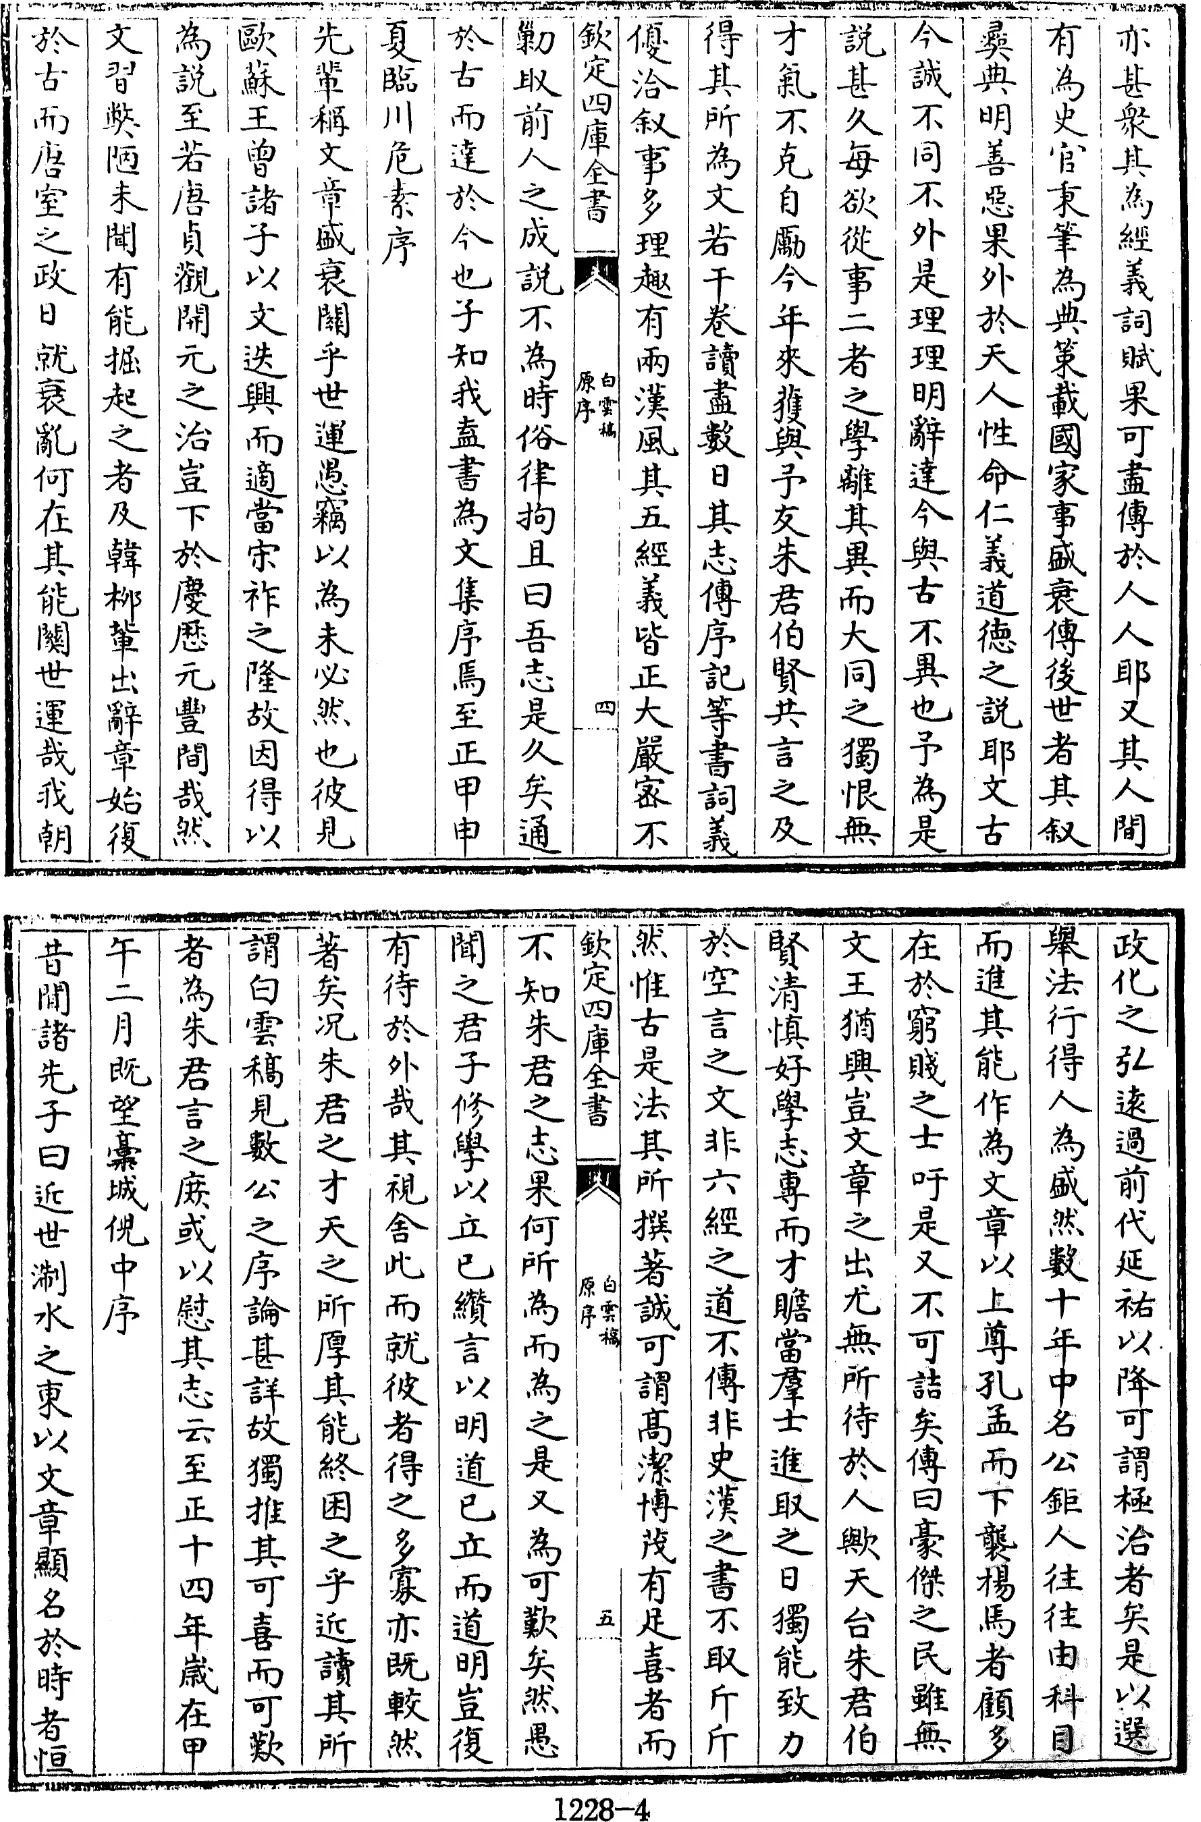 亦甚衆其為經義詞賦果可盡傳於人人耶又其人間
有為史官秉筆為典策載國家事盛衰傳後世者其叙
彛典明善惡果外於天人性命仁義道德之説耶文古
今誠不同不外是理理明辭達今與古不異也予為是
説甚久每欲從事二者之學離其異而大同之獨恨無
才氣不克自勵今年來獲與予友朱君伯賢共言之及
得其所為文若干卷讀盡數日其志傳序記等書詞義
優洽叙事多理趣有兩漢風其五經義皆正大嚴宻不
欽定四庫全書
白雲稿
原序
四
勦取前人之成説不為時俗律拘且曰吾志是久矣通
於古而達於今也子知我盍書為文集序焉至正甲申
夏臨川危素序
先輩稱文章盛衰關乎世運愚竊以為未必然也彼見
歐蘇王曾諸子以文迭興而適當宋祚之隆故因得以
為説至若唐貞觀開元之治豈下於慶厯元豐間哉然
文習弊陋未聞有能掘起之者及韓栁輩出辭章始復
於古而唐室之政日就衰亂何在其能關世運哉我朝
政化之弘逺過前代延祐以降可謂極治者矣是以選
舉法行得人為盛然數十年中名公鉅人往往由科目
而進其能作為文章以上尊孔孟而下襲楊馬者顧多
在於窮賤之士吁是又不可詰矣傳曰豪傑之民雖無
文王猶興豈文章之出尤無所待於人歟天台朱君伯
賢清慎好學志專而才贍當羣士進取之日獨能致力
於空言之文非六經之道不傳非史漢之書不取斤斤
然惟古是法其所撰著誠可謂髙潔博茂有足喜者而
欽定四庫全書
白雲稿
原序
五
不知朱君之志果何所為而為之是又為可歎矣然愚
聞之君子修學以立已纘言以明道已立而道明豈復
有待於外哉其視舍此而就彼者得之多寡亦既較然
著矣况朱君之才天之所厚其能終困之乎近讀其所
謂白雲稿見數公之序論甚詳故獨推其可喜而可歎
者為朱君言之庶或以慰其志云至正十四年嵗在甲
午二月既望藁城倪中序
昔聞諸先子曰近世淛水之東以文章顯名於時者恒
1228-4